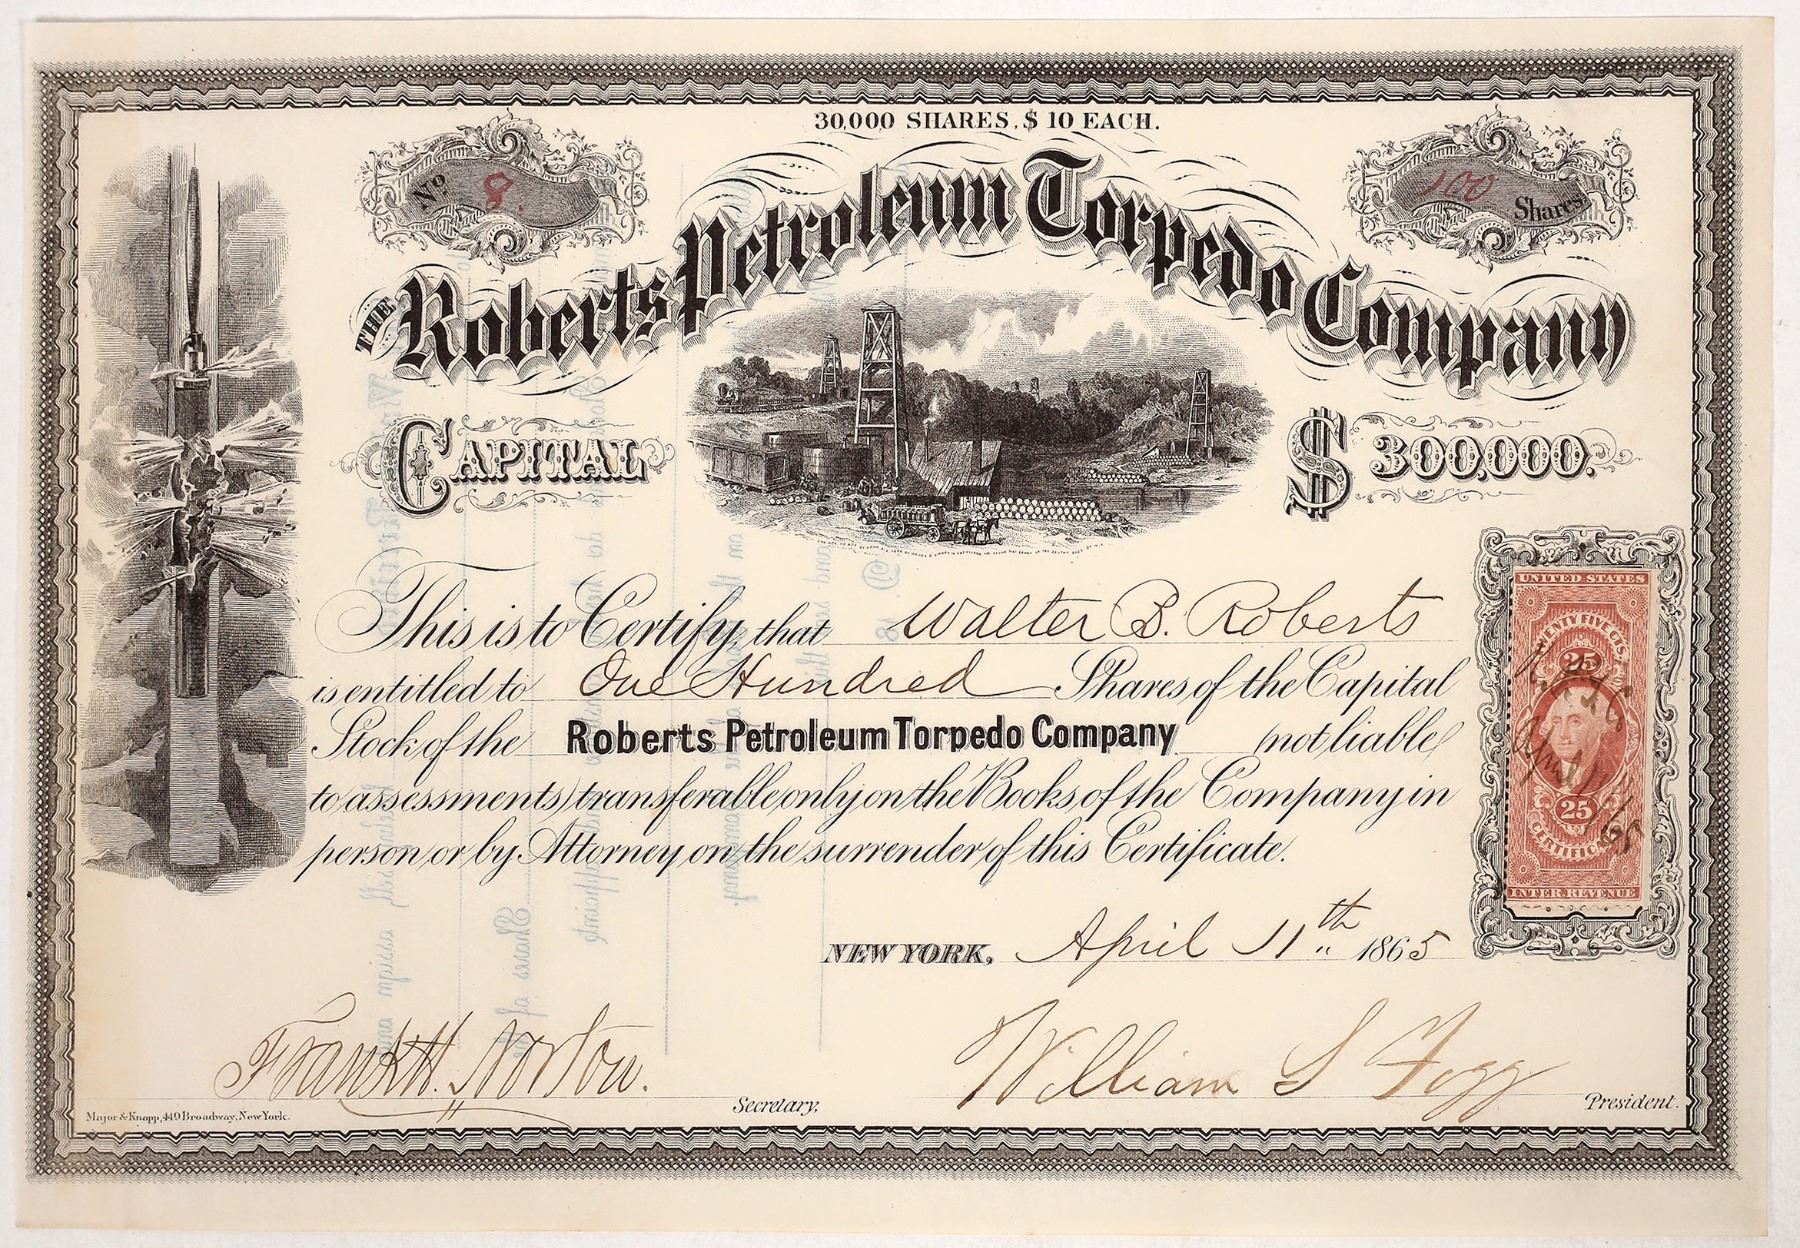 30,000 SHARES, $ 10 EACH.
No. 8.
100 Shares.
THE Roberts Petroleum Torpedo Company
CAPITAL $300,000.
This is to Certify that Walter B. Roberts
is entitled to One Hundred Shares of the Capital
Stock of the Roberts Petroleum Torpedo Company (not liable
to assessments) transferable only on the Books of the Company in
person or by Attorney on the surrender of this Certificate.
UNITED STATES
TWENTY FIVE CTS.
25
25
CERTIFICATE
INTER. REVENUE
NEW YORK, April 11th 1865
Frank H. Norton.
Secretary.
William S Fogg
President.
Major & Knapp, 449 Broadway, New York.